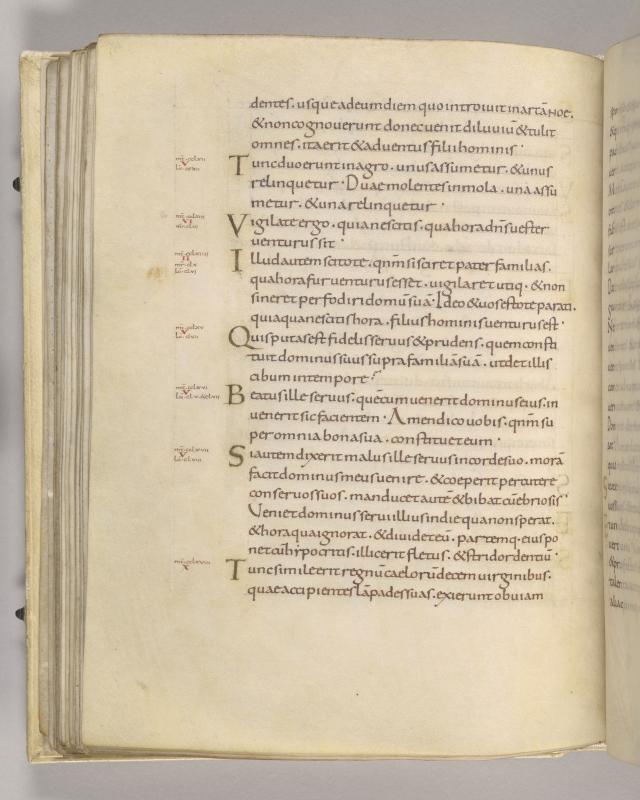 dentes. usque adeum diem quo introiuit in arcā Noe.
& non cognouerunt donec uenit diluuiū & tulit
omnes. ita erit & aduentus filii hominis.
Tunc duo erunt in agro. unus assumetur. & unus
relinquetur. Duae molentes in mola. una assu
metur. & una relinquetur.
Vigilate ergo. quia nescitis. qua hora dn̄s uester
uenturus sit.
Illud autem scitote. qnm̄ si sciret pater familias.
qua hora fur uenturus esset. uigilaret utiq. & non
sineret perfodiri domū suā. Ideo & uos estote parati.
quia qua nescitis hora. filius hominis uenturus est.
Quis putas est fidelis seruus & prudens. quem consti
tuit dominus suus supra familiā suā. ut det illis
cibum in tempore?
Beatus ille seruus. quē cum uenerit dominus eius. in
uenerit sic facientem. Amen dico uobis. qnm̄ su
per omnia bona sua. constituet eum.
Si autem dixerit malus ille seruus in corde suo. morā
facit dominus meus uenire. & coeperit percutere
conseruos suos. manducet autē & bibat cū ebriosis
Veniet dominus serui illius in die qua non sperat.
& hora qua ignorat. & diuidet eū. partemq. eius po
net cū hypocritis. illic erit fletus. & stridor dentiū.
Tunc simile erit regnū caelorū decem uirginibus.
quae accipientes lāpades suas. exierunt obuiam